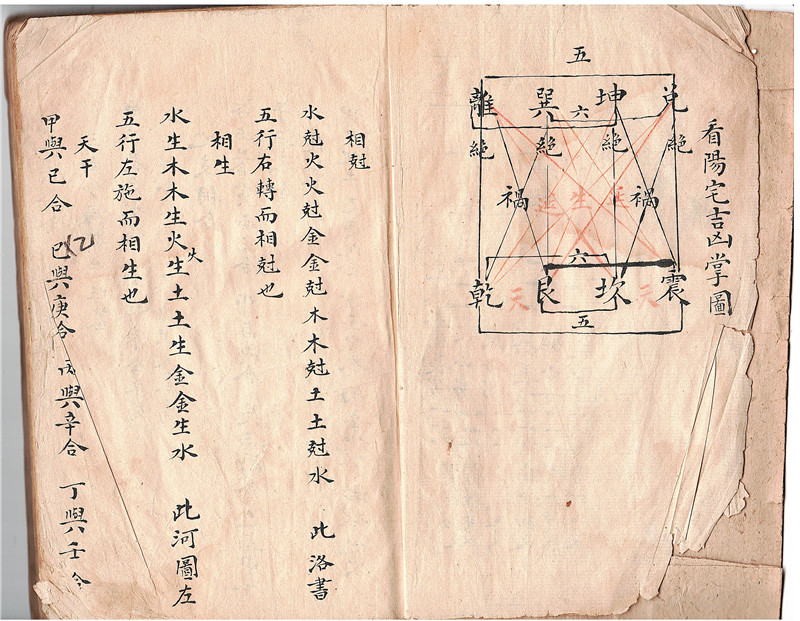 看陽宅吉凶掌圖
五
離 巽 坤 兌
六
絕 絕 絕 絕
禍 禍
延 生 天
六
乾 艮 坎 震
天 元
五
相尅
水尅火火尅金金尅木木尅土土尅水 此洛書
五行右轉而相尅也
相生
水生木木生火火生土土生金金生水 此河圖左
五行左施而相生也
天干
甲與已合 乙與庚合 丙與辛合 丁與壬合